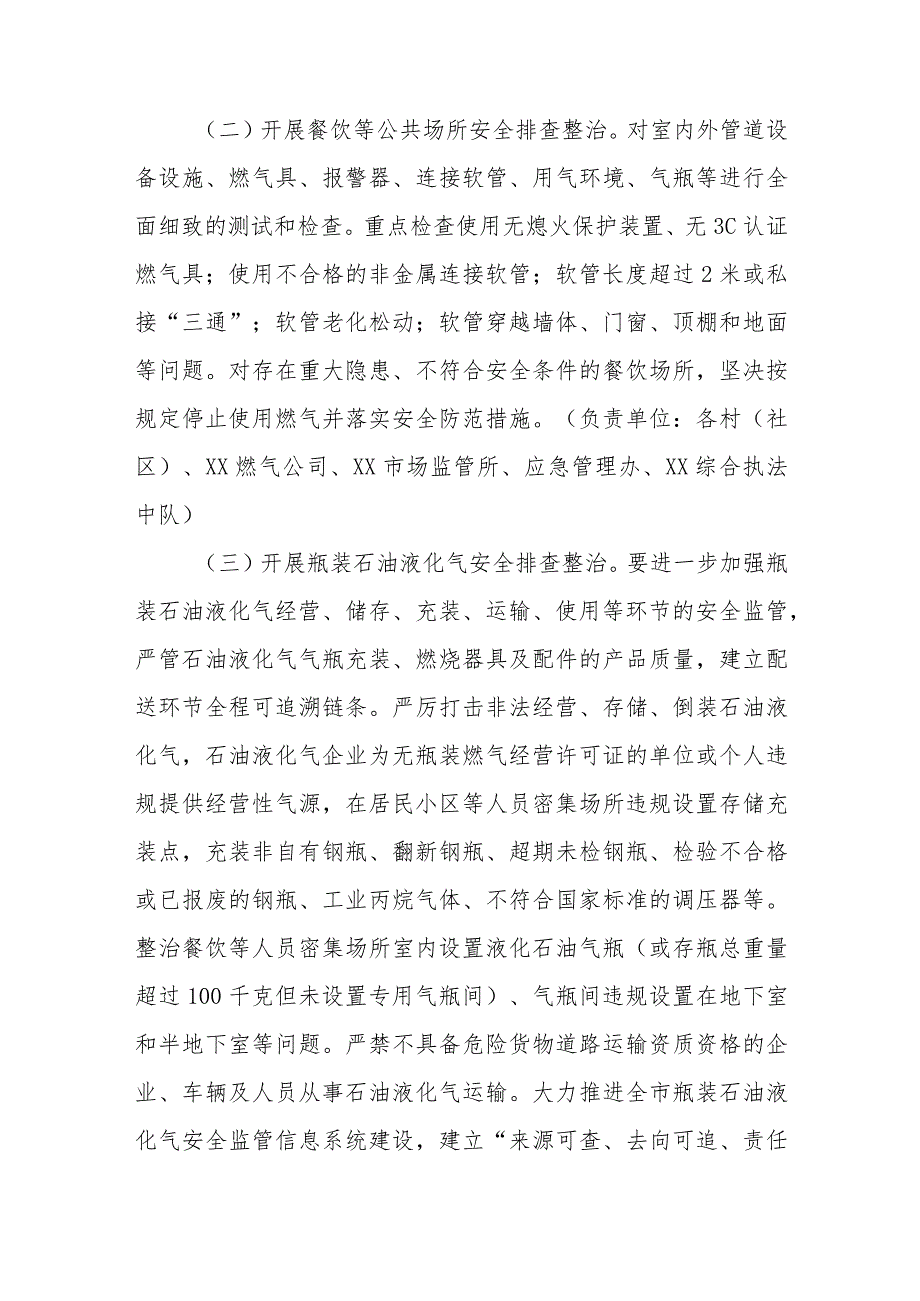 （二）开展餐饮等公共场所安全排查整治。对室内外管道设
备设施、燃气具、报警器、连接软管、用气环境、气瓶等进行全
面细致的测试和检查。重点检查使用无熄火保护装置、无3C认证
燃气具；使用不合格的非金属连接软管；软管长度超过2米或私
接“三通”；软管老化松动；软管穿越墙体、门窗、顶棚和地面
等问题。对存在重大隐患、不符合安全条件的餐饮场所，坚决按
规定停止使用燃气并落实安全防范措施。（负责单位：各村（社
区）、XX燃气公司、XX市场监管所、应急管理办、XX综合执法
中队）
（三）开展瓶装石油液化气安全排查整治。要进一步加强瓶
装石油液化气经营、储存、充装、运输、使用等环节的安全监管，
严管石油液化气气瓶充装、燃烧器具及配件的产品质量，建立配
送环节全程可追溯链条。严厉打击非法经营、存储、倒装石油液
化气，石油液化气企业为无瓶装燃气经营许可证的单位或个人违
规提供经营性气源，在居民小区等人员密集场所违规设置存储充
装点，充装非自有钢瓶、翻新钢瓶、超期未检钢瓶、检验不合格
或已报废的钢瓶、工业丙烷气体、不符合国家标准的调压器等。
整治餐饮等人员密集场所室内设置液化石油气瓶（或存瓶总重量
超过100千克但未设置专用气瓶间）、气瓶间违规设置在地下室
和半地下室等问题。严禁不具备危险货物道路运输资质资格的企
业、车辆及人员从事石油液化气运输。大力推进全市瓶装石油液
化气安全监管信息系统建设，建立“来源可查、去向可追、责任